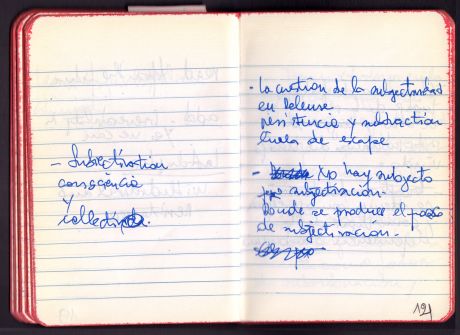 - Subjectivation
consciência
y
collectiva.
- La cuestión de la subjectividad
en Deleuze
resistencia y substraction
linea de escape
- Xp hay subjecto
subjectivación.
Donde se produce el paso
de subjectivación.
121